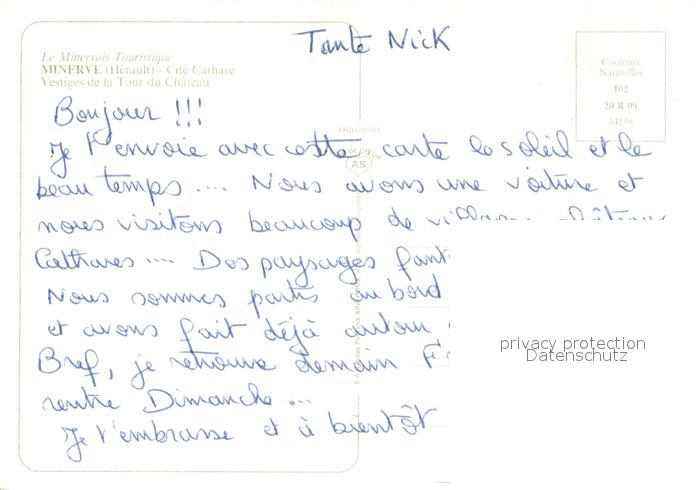 Tante Nick
Le Minervois Touristique
MINERVE (Hérault) - Cité Cathare
Vestiges de la Tour du Château
Couleurs
Naturelles
102
20 R 09
34158
Bonjour !!!
EXCLUSIVITÉ
Je t'envoie avec cette carte le soleil et le
AS
beau temps .... Nous avons une voiture et
nous visitons beaucoup de
Cathares .... Des paysages
Nous sommes partis au bord
et avons fait déjà autour
Bref, je retrouve demain
rentre Dimanche ...
Je t'embrasse et à bientôt
privacy protection
Datenschutz